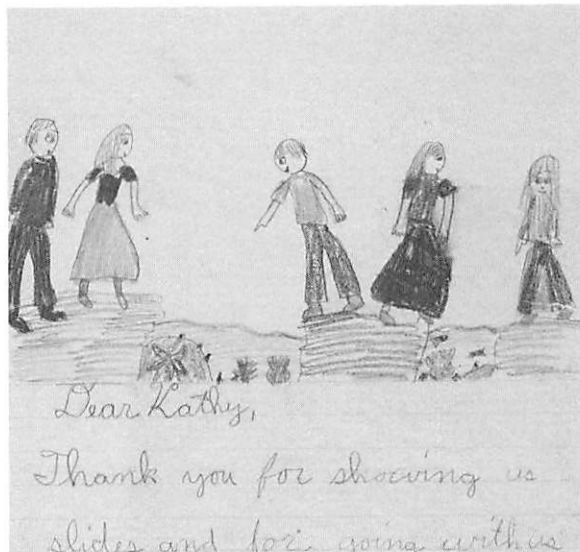 Dear Kathy,
Thank you for showing us
slides and for going with us